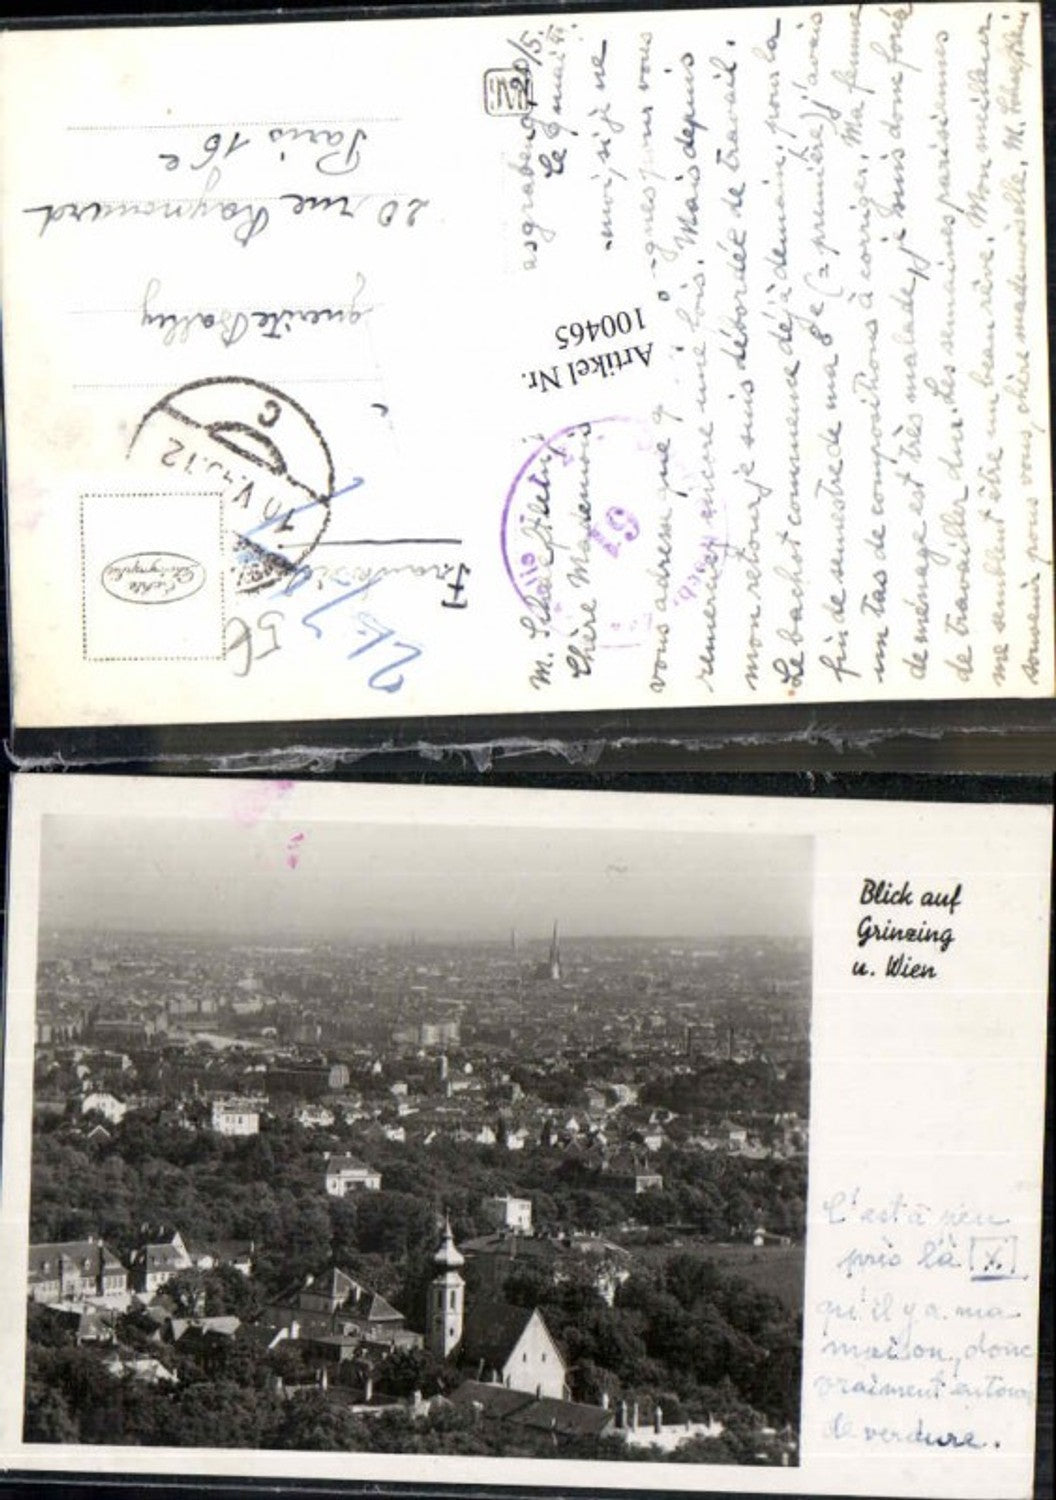 M. Schaeffletin
esgraben 20/5.
Le mai
Chère Mademoi
-moi, si je ne
vous adresse que
-gnes pour vous
remercier encore une fois. Mais depuis
mon retour, je suis débordée de travail.
Le bachot commence déjà demain, pour la
fin de semestre de ma 8e (= première) j'avais
un tas de compositions à corriger. Ma femme
de ménage est très malade, je suis donc forcé
de travailler dur. Les semaines parisiennes
me semblent être un beau rêve. Mon meilleur
souvenir pour vous, chère mademoiselle. M.
Artikel Nr.
100465
guerite Bally
20 rue Raynouard
Paris 16e
Echte
Photographie
C
10.V.
12
56
Blick auf
Grinzing
u. Wien
C'est à peu
près là [x]
qu'il y a ma
maison, donc
vraiment entouré
de verdure.